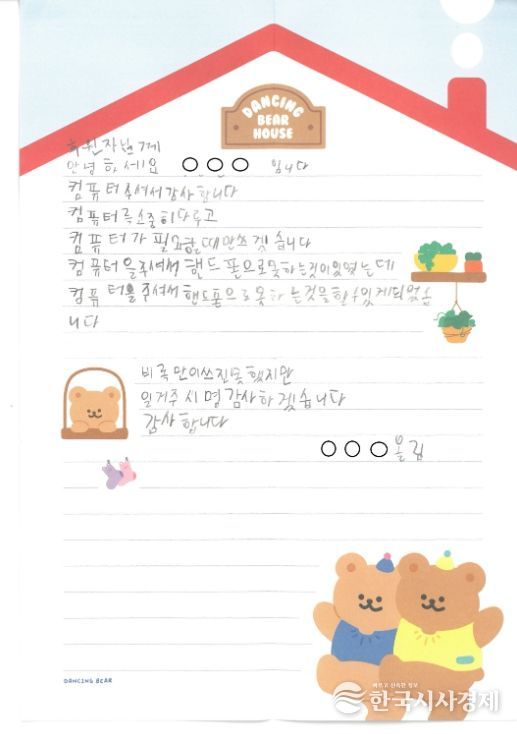 DANCING
BEAR
HOUSE
후원자님께
안녕하세요 ○○○ 입니다
컴퓨터 주셔서 감사합니다
컴퓨터를 소중히 다루고
컴퓨터가 필요할 때만 쓰겟습니다
컴퓨터을 주셔서 핸드폰으로 못하는것이 있었는데
컴퓨터를 주셔서 핸드폰으로 못하는것을 할 수 있게 되었습
니다
비록 만이 쓰진 못했지만
일거주시명 감사하겠습니다
감사합니다
○○○ 올림
DANCING BEAR
빠르고 신속한 정보
한국시사경제